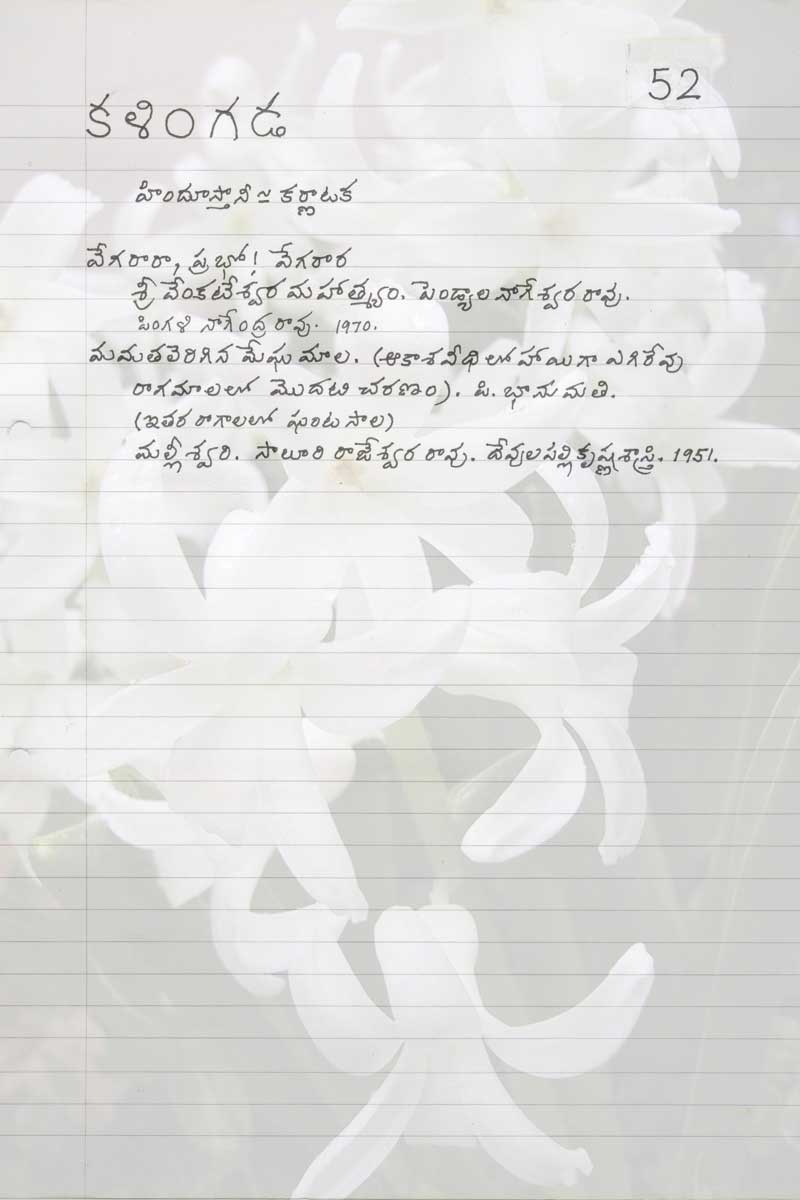 52
కళింగడ
హిందూస్తానీ ≃ కర్ణాటక
వేగరారా, ప్రభో! వేగరార
శ్రీ వేంకటేశ్వర మహాత్మ్యం. పెండ్యాల నాగేశ్వర రావు.
పింగళి నాగేంద్ర రావు. 1970.
మమతవెరిగిన మేఘ మాల. (ఆకాశవీథిలో హాయిగా ఎగిరేవు
రాగమాలలో మొదటి చరణం). పి. భానుమతి.
(ఇతర రాగాలలో ఘంటసాల)
మల్లీశ్వరి. సాలూరి రాజేశ్వర రావు. దేవులపల్లి కృష్ణశాస్త్రి. 1951.